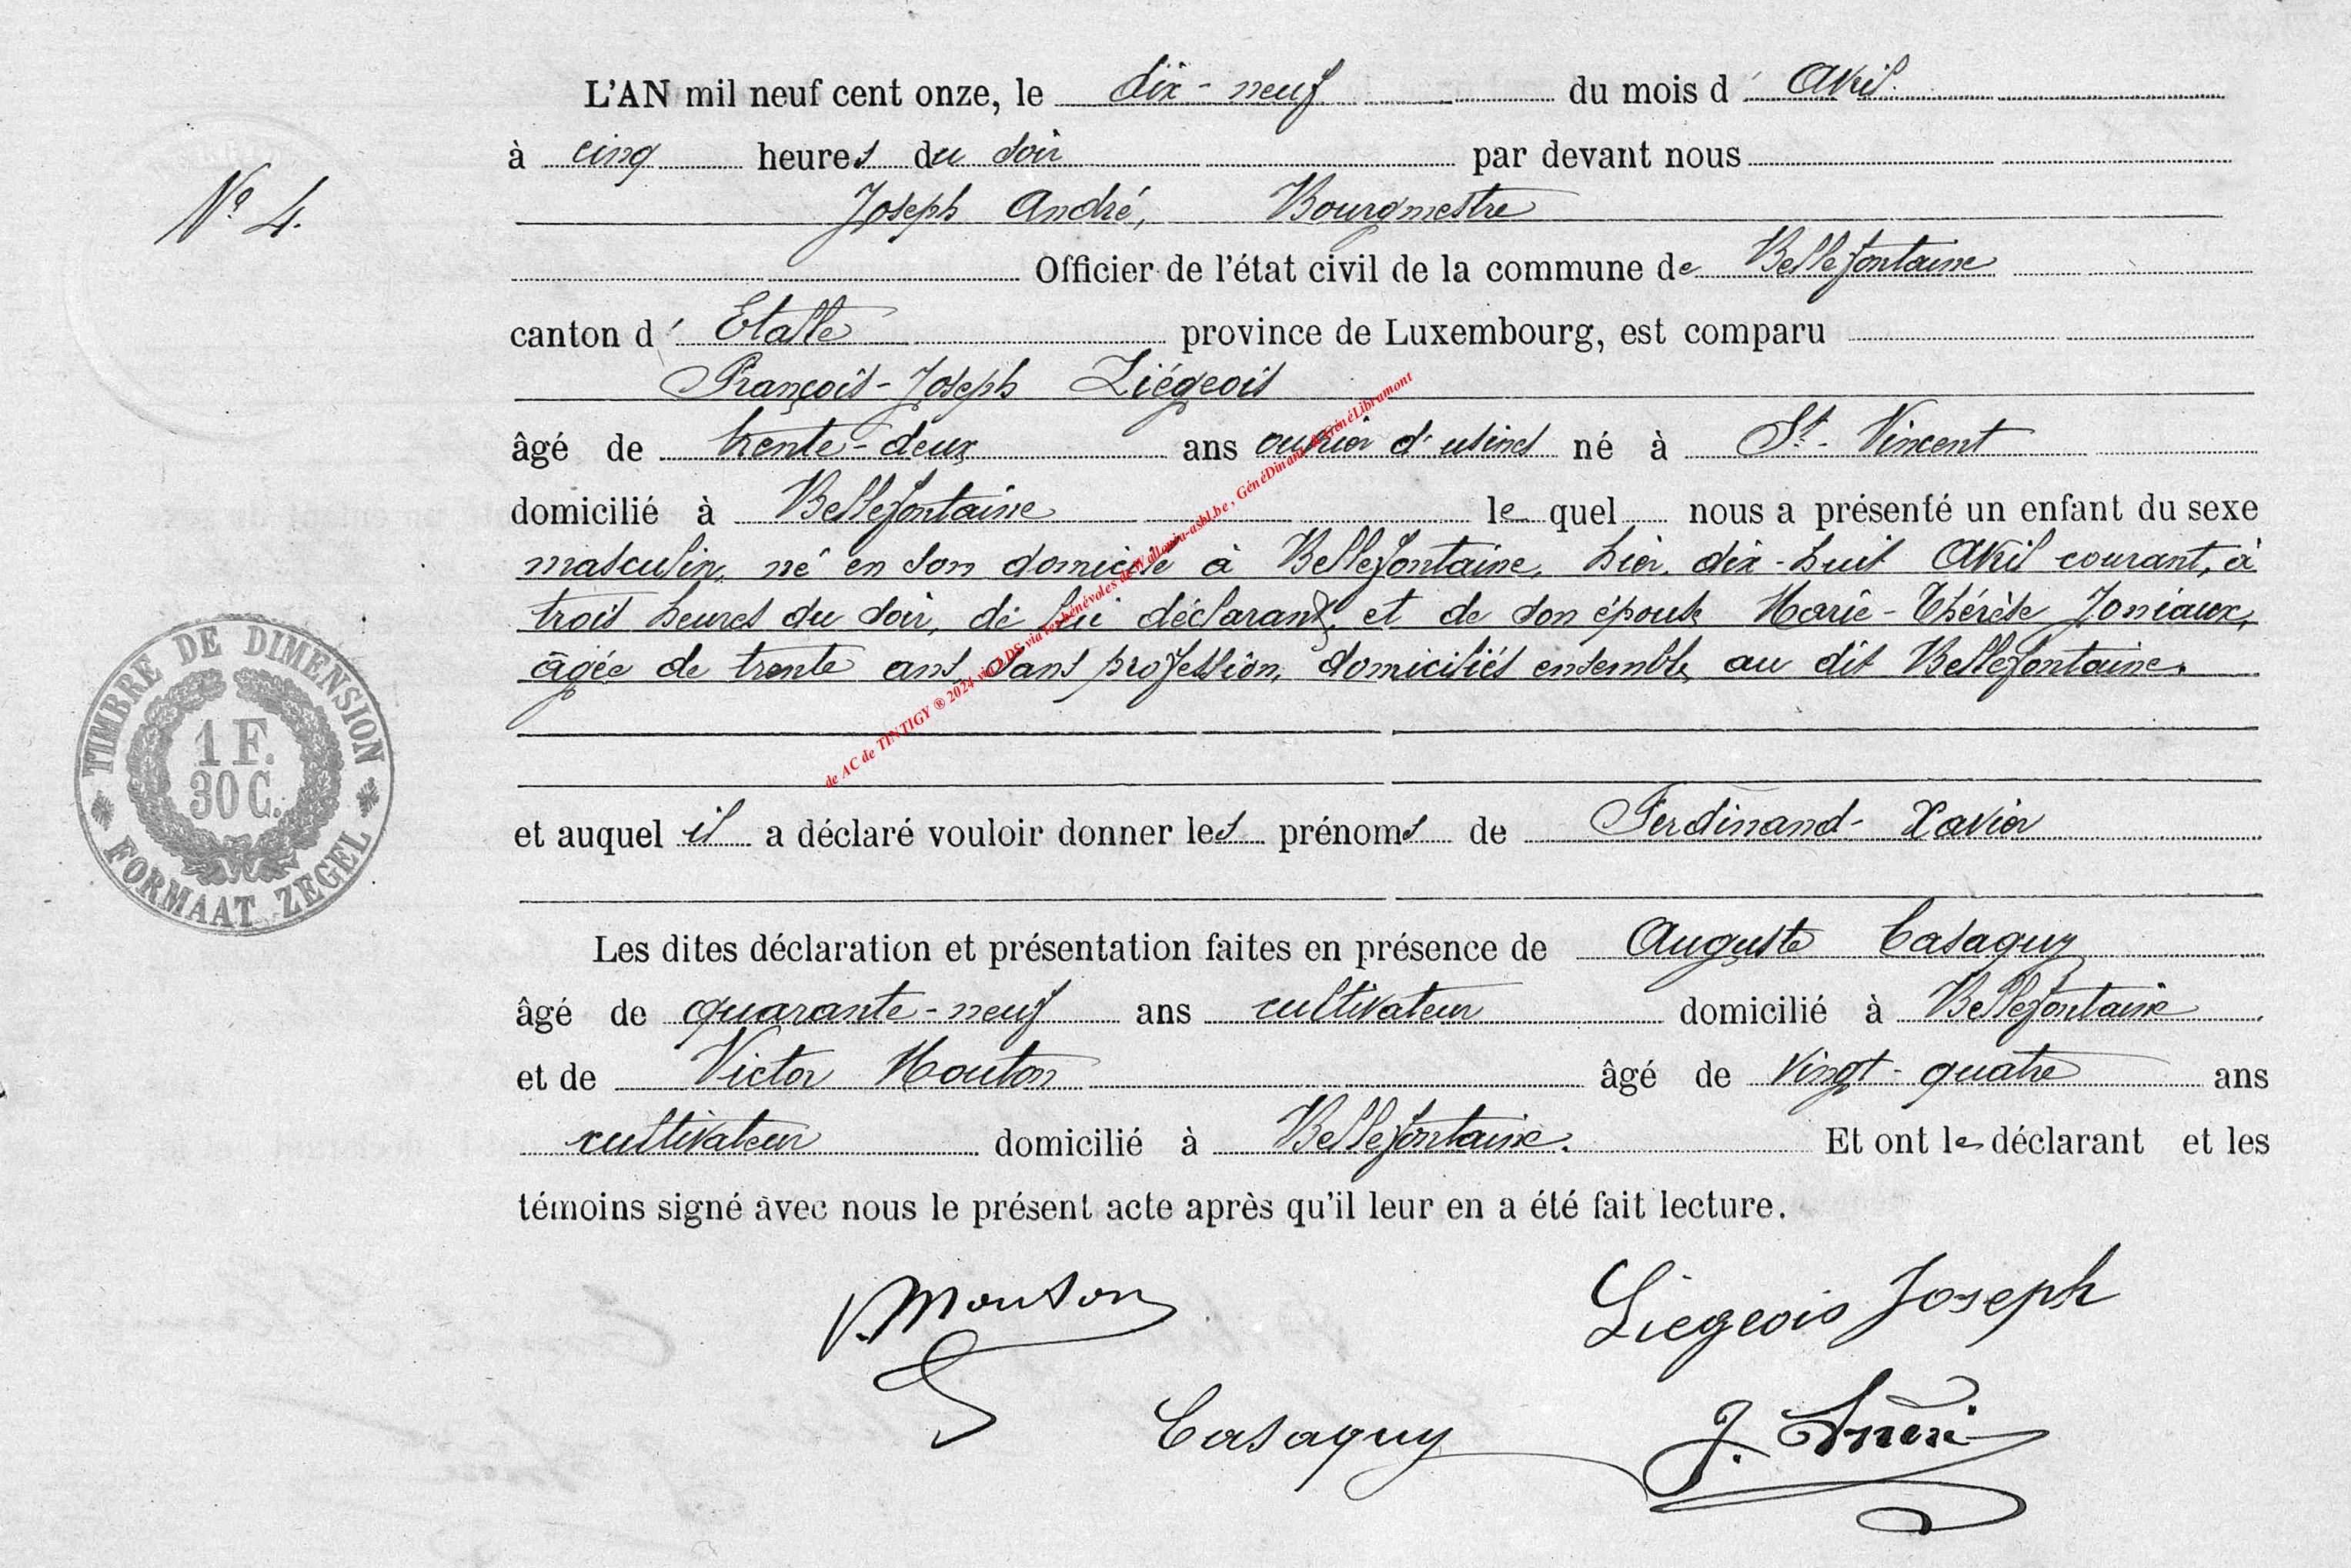 L'AN mil neuf cent onze, le dix-neuf du mois d' Avril
à cinq heures du soir par devant nous
N° 4.
Joseph André, Bourgmestre
Officier de l'état civil de la commune de Bellefontaine
canton d' Etalle province de Luxembourg, est comparu
François-Joseph Liégeois
âgé de trente-deux ans ouvrier d'usines né à St-Vincent
domicilié à Bellefontaine lequel nous a présenté un enfant du sexe
masculin, né en son domicile à Bellefontaine, hier, dix-huit Avril courant, à
trois heures du soir, de lui déclarant, et de son épouse Marie-Thérèse Joniaux,
âgée de trente ans, sans profession, domiciliés ensemble au dit Bellefontaine.
de AC de TINTIGY ® 2024 via LDS via les bénévoles de Wallonia-asbl.be, GénéDinant & GénéLibramont
TIMBRE DE DIMENSION
1 F.
30 C.
FORMAAT ZEGEL
et auquel il a déclaré vouloir donner les prénoms de Ferdinand-Xavier
Les dites déclaration et présentation faites en présence de Auguste Casaquy
âgé de quarante-neuf ans cultivateur domicilié à Bellefontaine
et de Victor Mouton âgé de vingt-quatre ans
cultivateur domicilié à Bellefontaine. Et ont le déclarant et les
témoins signé avec nous le présent acte après qu'il leur en a été fait lecture.
V. Mouton
Liegeois Joseph
Casaquy
J. André